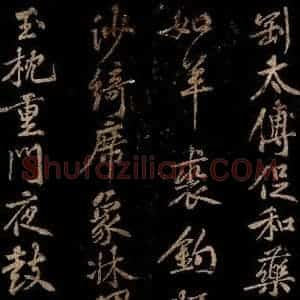 劉太傅促和藥
如羊裘釣
沙綺席象牀
玉枕重門夜鼓
Shufaziliao.COM